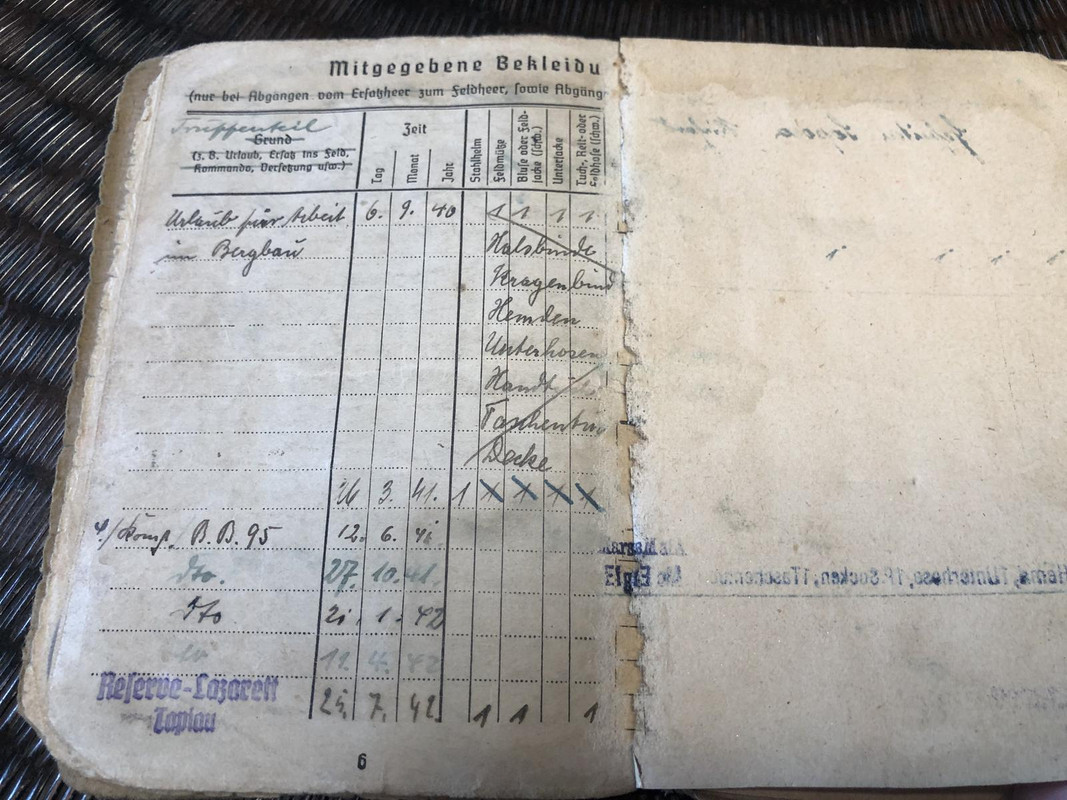 Mitgegebene Bekleidu
(nur bei Abgängen vom Ersatzheer zum Feldheer, sowie Abgäng
Truppenteil
Grund
(z. B. Urlaub, Ersatz ins Feld,
Kommando, Versetzung usw.)
Zeit
Tag
Monat
Jahr
Stahlhelm
Feldmütze
Bluse oder Feld-
jacke (schw.)
Unterjacke
Tuch-, Reit- oder
Feldhose (schw.)
Urlaub für Arbeit 6. 9. 40 1 1 1 1
im Bergbau Halsbinde
Kragenbind
Hemden
Unterhosen
Handt
Taschentu
Decke
26 3. 41. 1 X X X X
4./Komp. B.B. 95 12. 6. 41
dto. 27. 10. 41.
dto 21. 1. 42
11. 4. 42
Reserve-Lazarett
Tapiau
25. 7. 42 1 1 1
6
Hemd, 1 Unterhose, 1 P Socken, 1 Taschentu